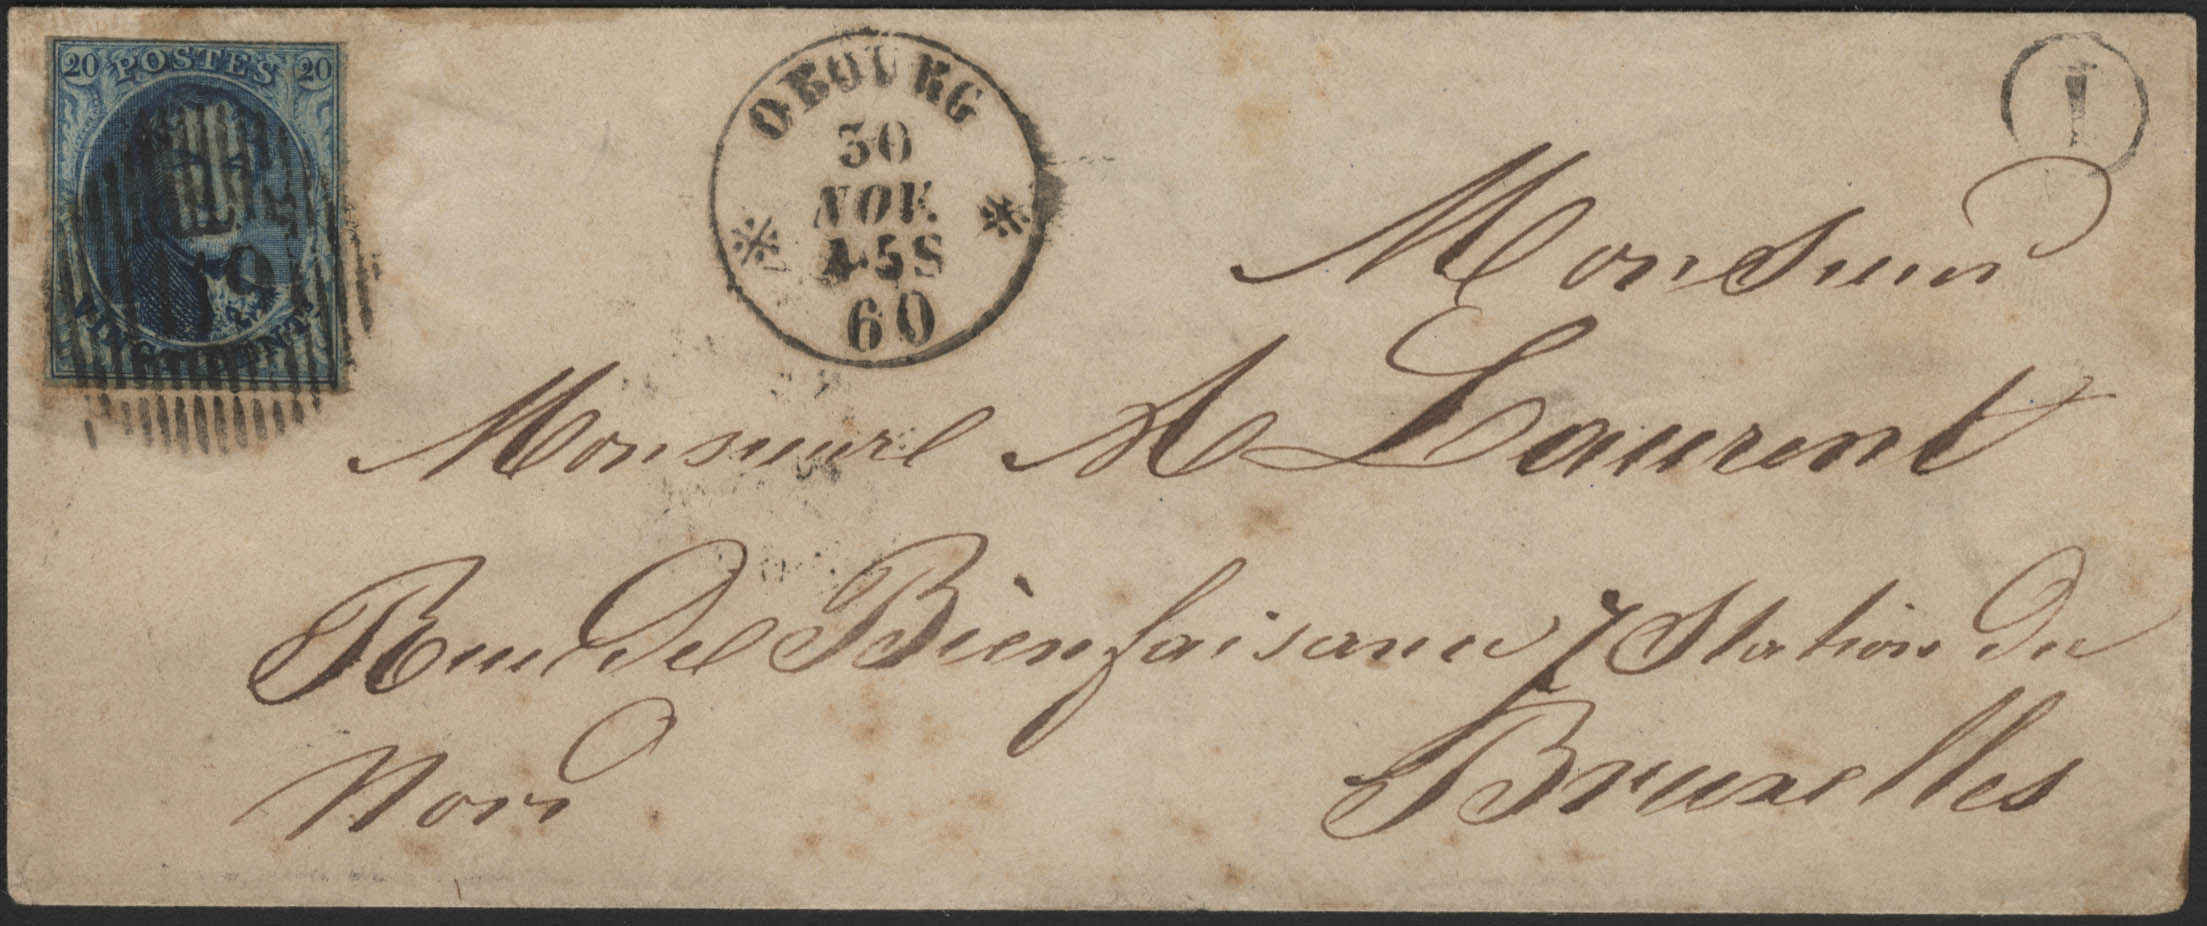 20 POSTES 20
VINGT CENTS
OBOURG
30
NOV.
4-5S
60
I
Monsieur
Monsieur A Laurent
Rue de Bienfaisance 7 Station du
Nord
Bruxelles